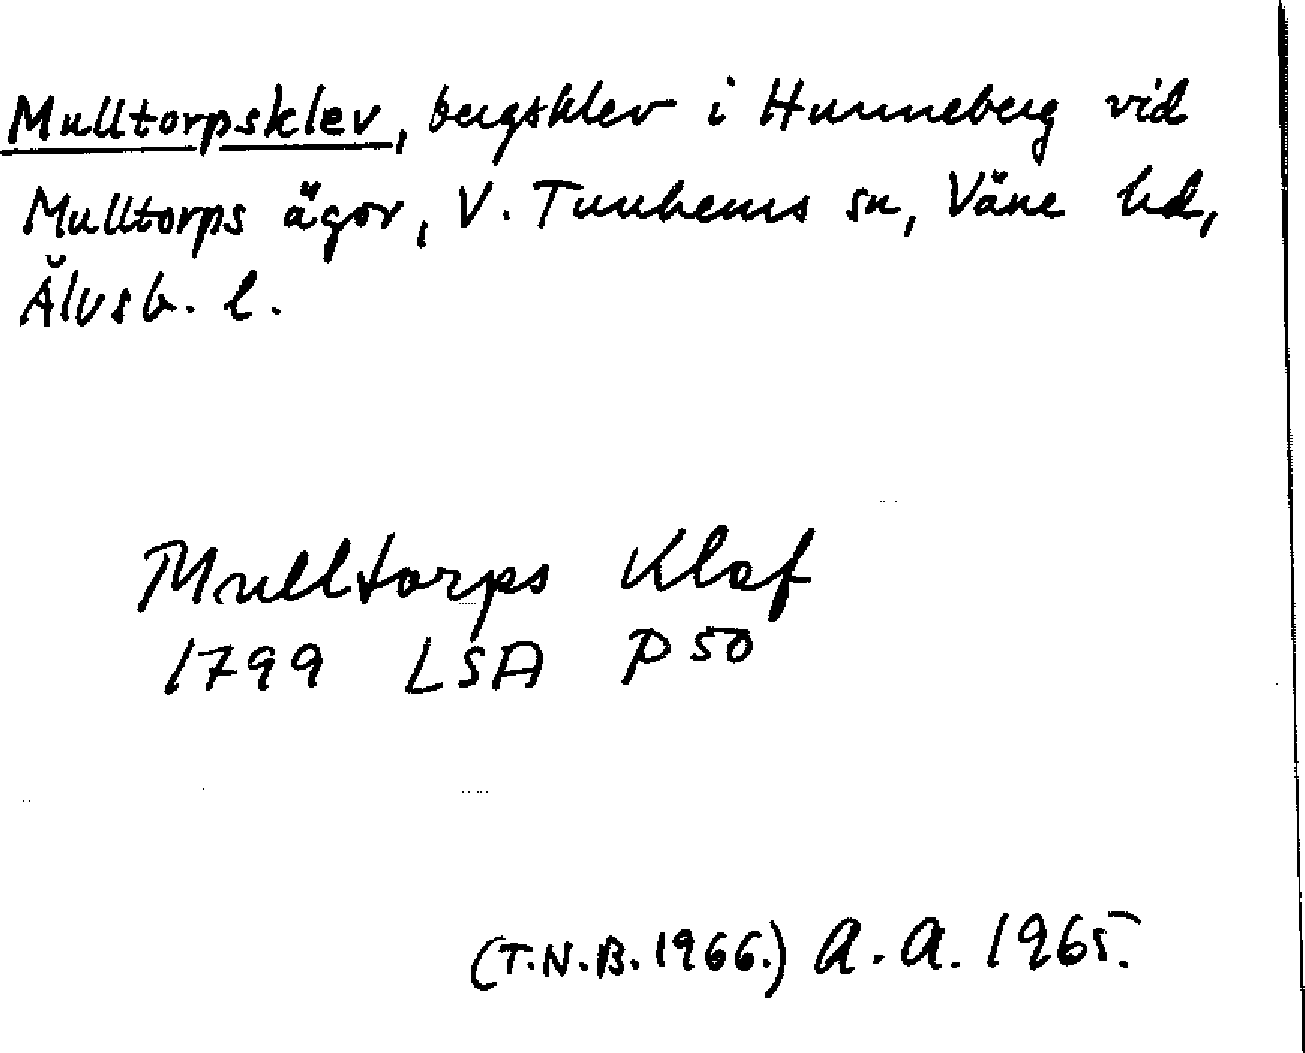 Mulltorpsklev, bergsklev i Hunneberg vid
Mulltorps ägor, V. Tunhems sn, Väne hd,
Älvsb. l.
Mulltorps Klef
1799 LSA P50
(T.N.B. 1966.) A. A. 1965.